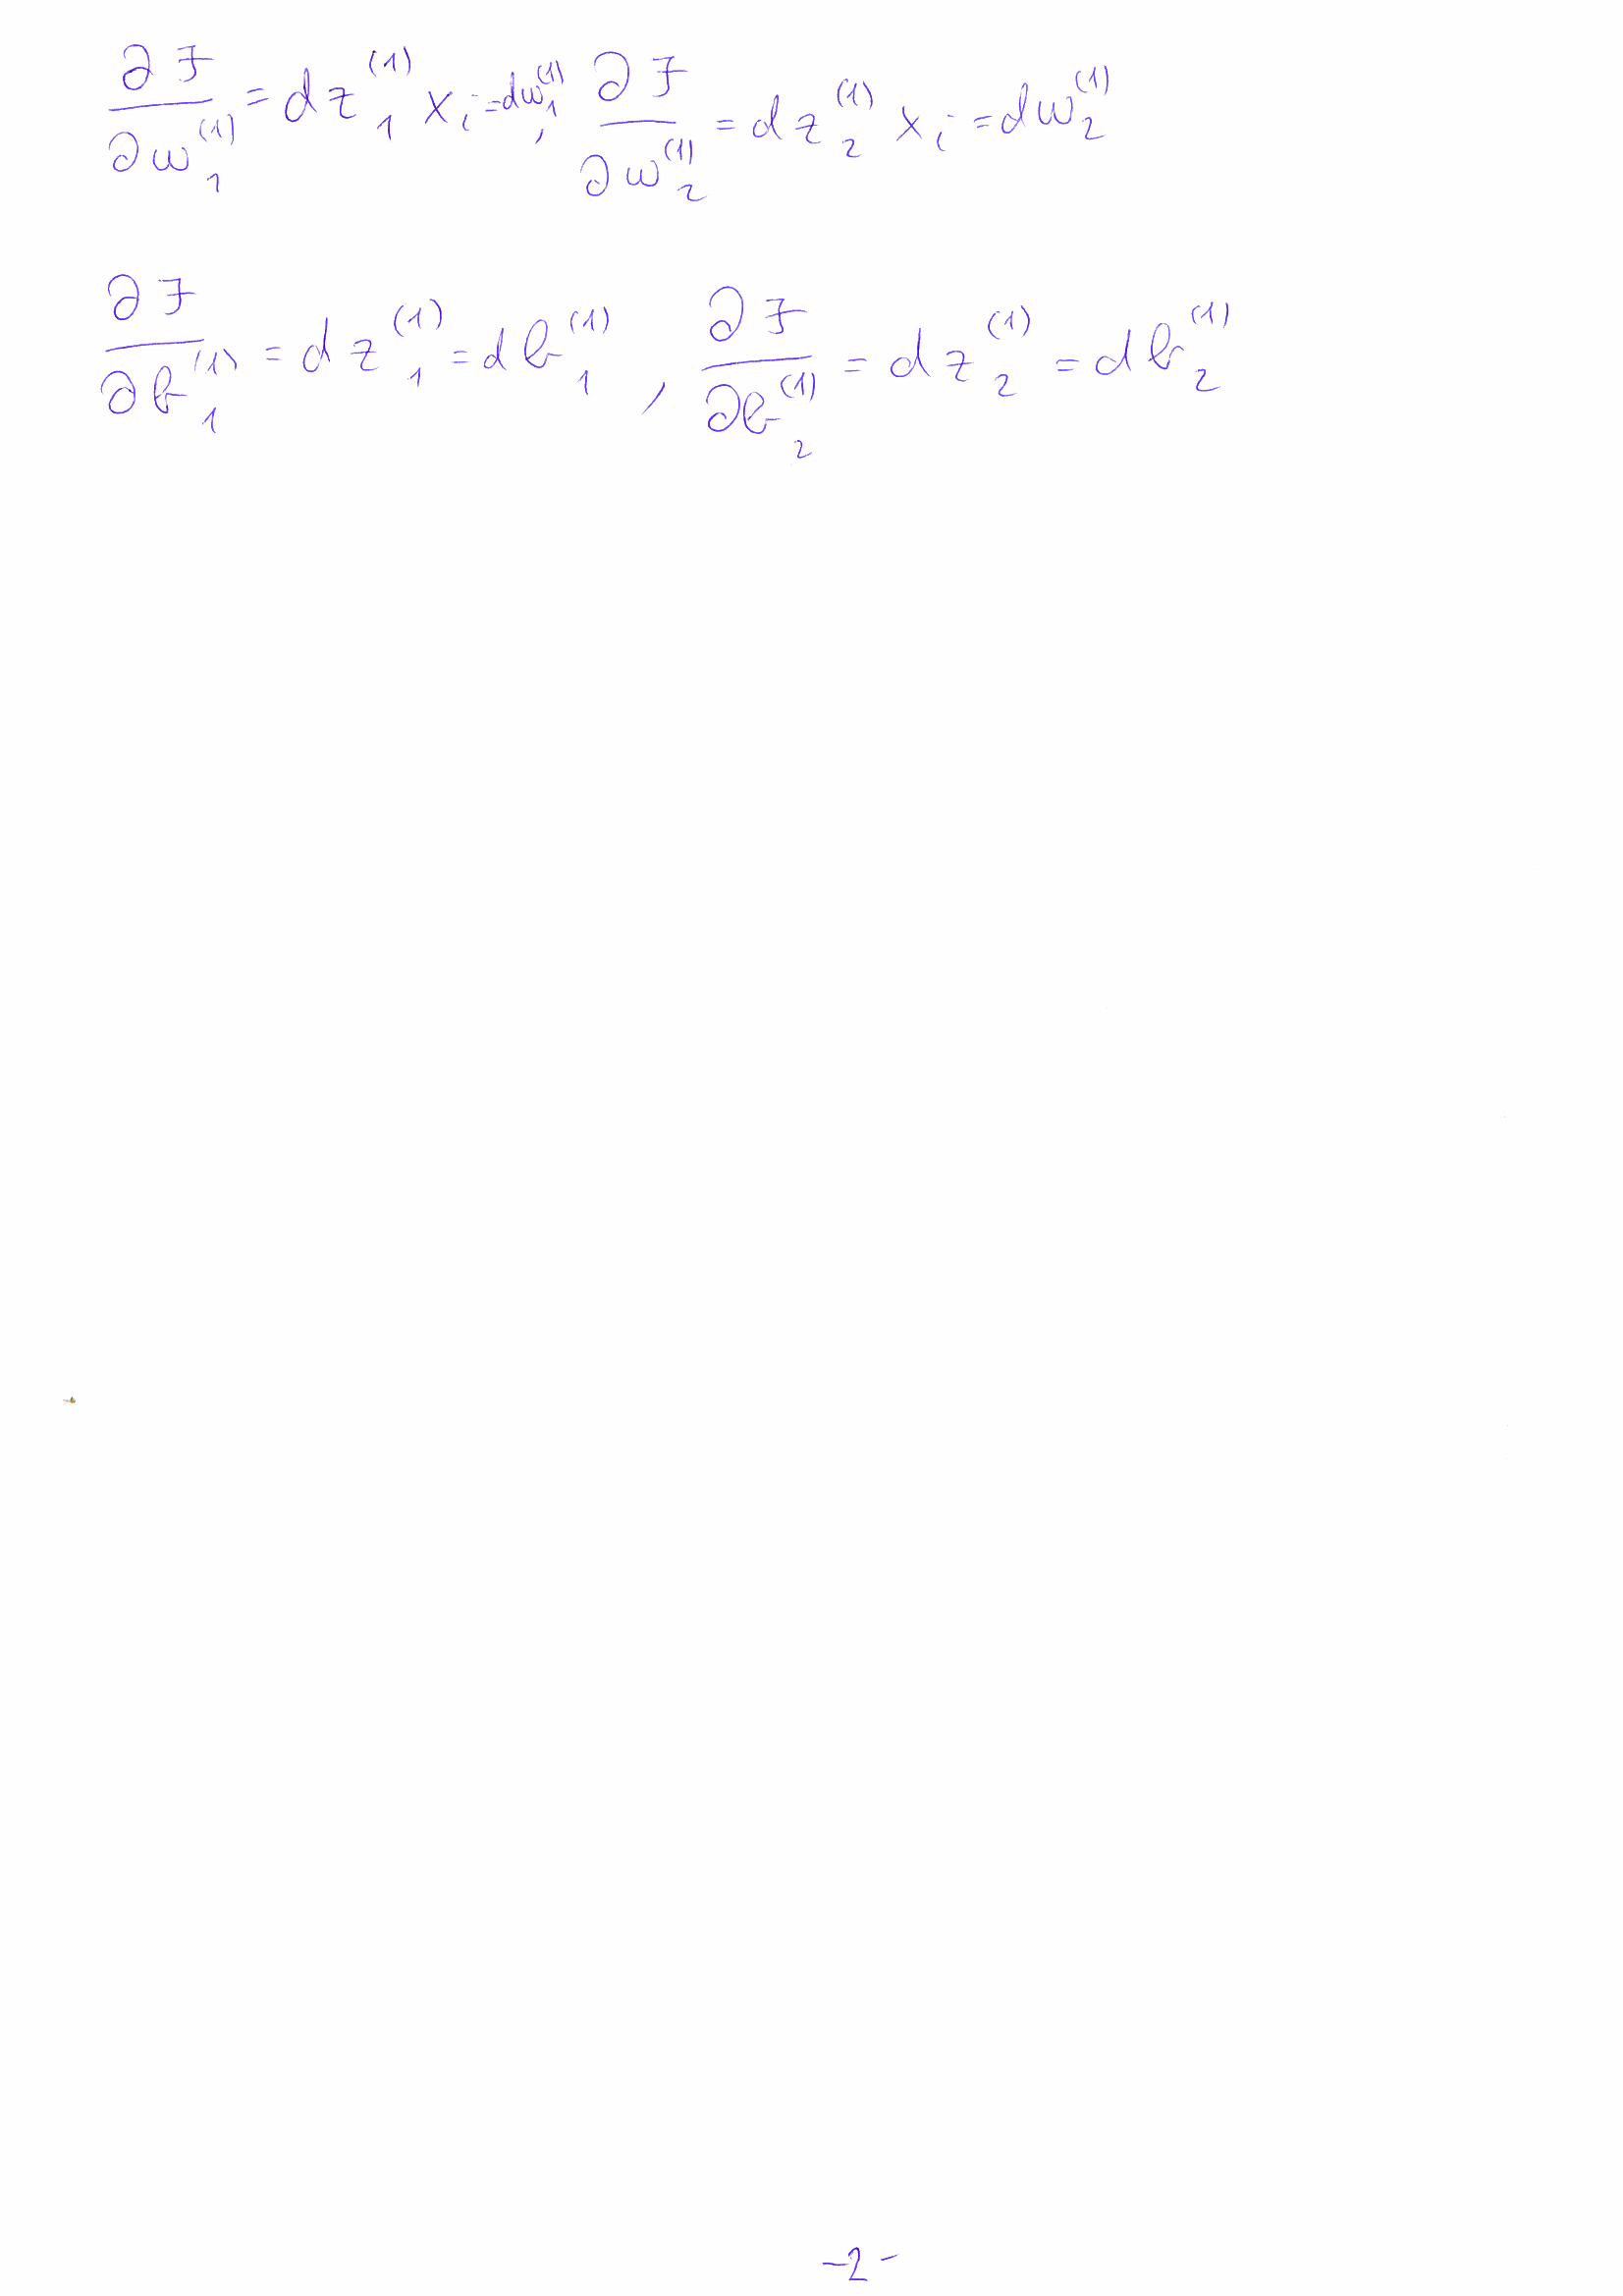 ∂J/∂w₁⁽¹⁾ = dz₁⁽¹⁾ xᵢ = dw₁⁽¹⁾, ∂J/∂w₂⁽¹⁾ = dz₂⁽¹⁾ xᵢ = dw₂⁽¹⁾
∂J/∂b₁⁽¹⁾ = dz₁⁽¹⁾ = db₁⁽¹⁾, ∂J/∂b₂⁽¹⁾ = dz₂⁽¹⁾ = db₂⁽¹⁾
-2-